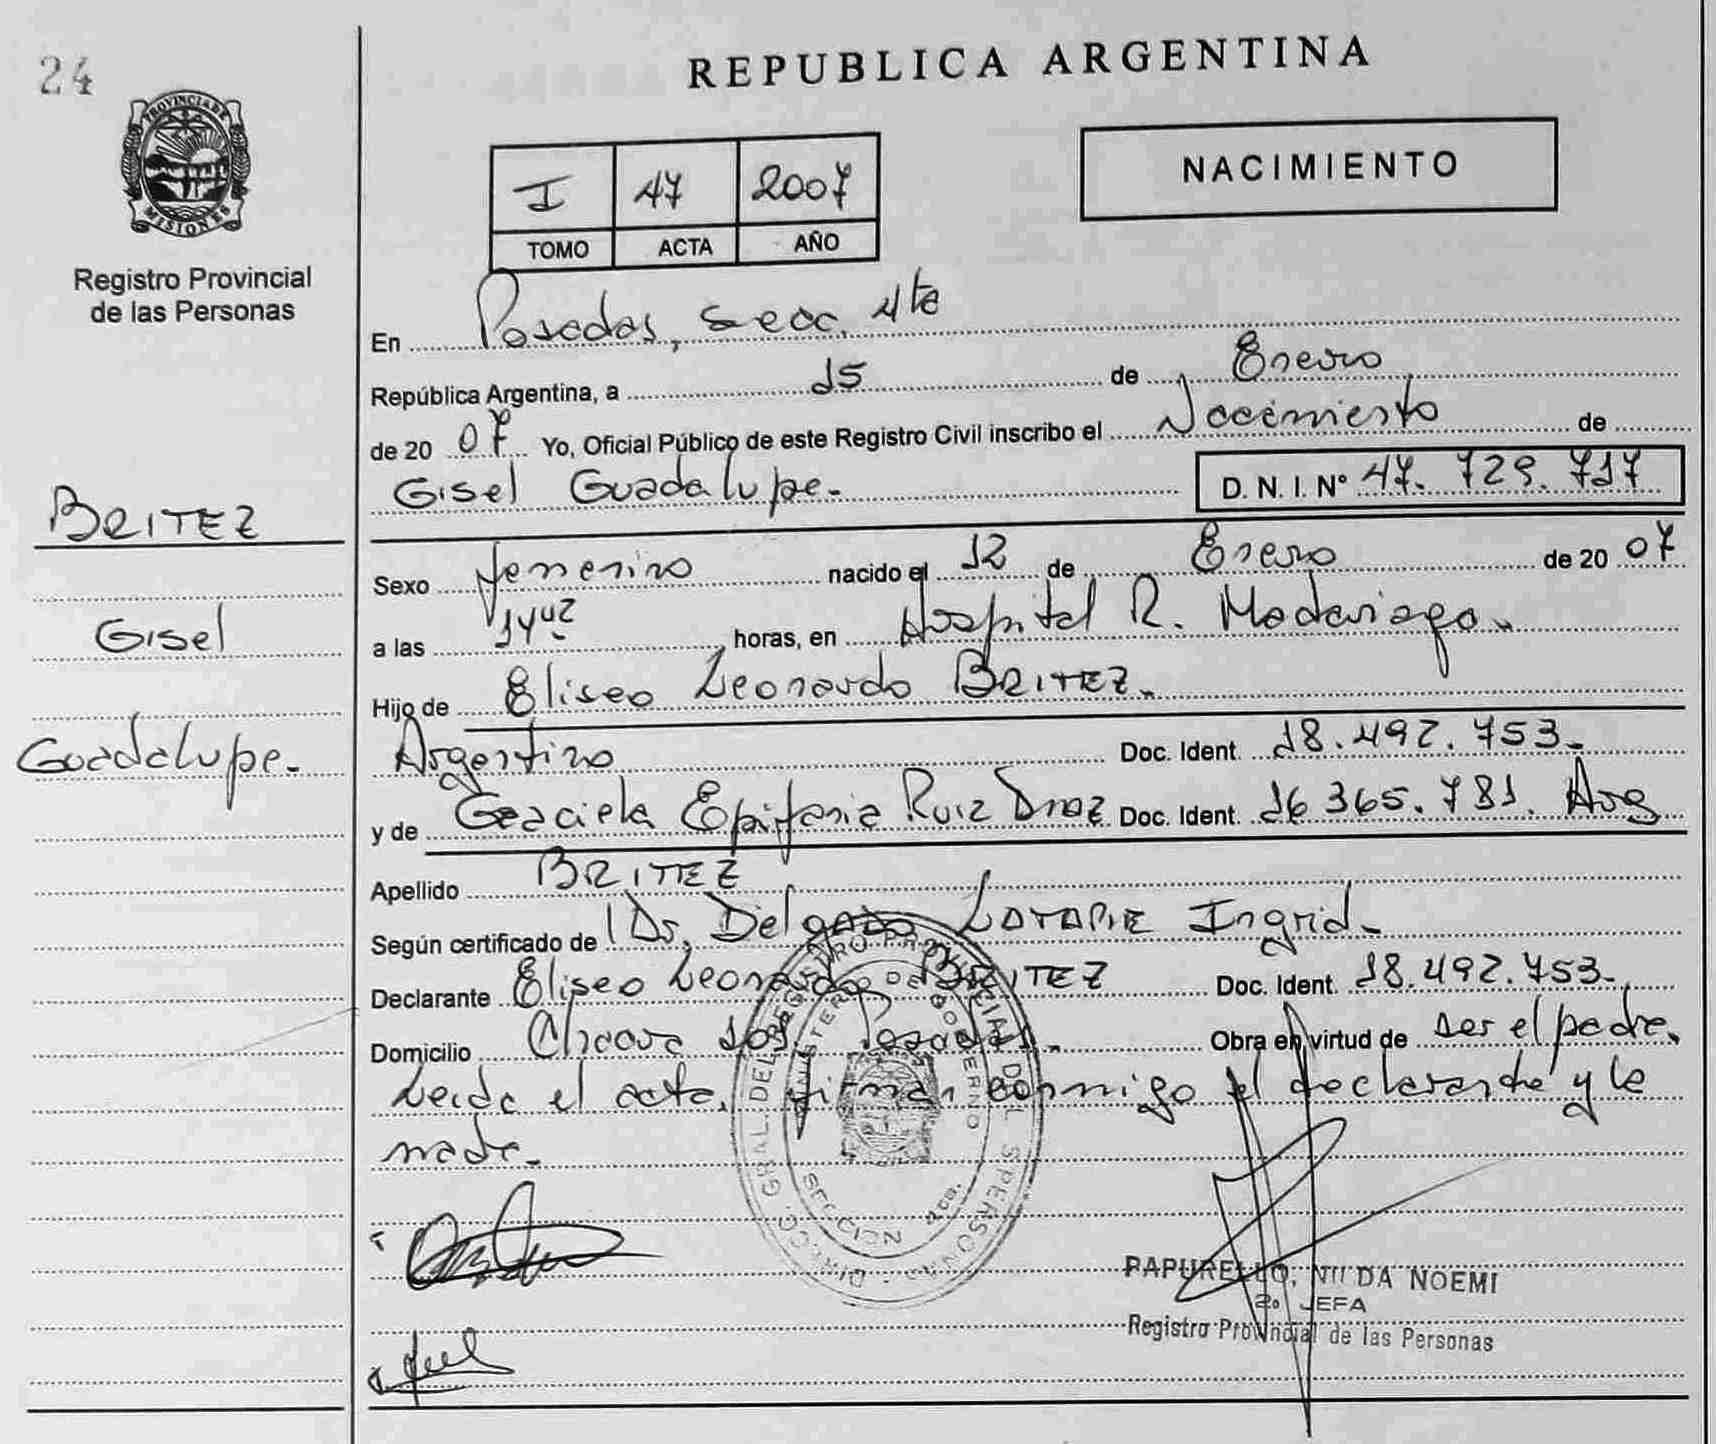 24
REPUBLICA ARGENTINA
PROVINCIA DE
MISIONES
Registro Provincial
de las Personas
I 47 2007
TOMO ACTA AÑO
NACIMIENTO
En Posadas, secc. 4ta
República Argentina, a 15 de Enero
de 2007 Yo, Oficial Público de este Registro Civil inscribo el Nacimiento de
Gisel Guadalupe.- D. N. I. Nº 47. 729. 717
BRITEZ
Gisel
Guadalupe.-
Sexo femenino nacido el 12 de Enero de 2007
a las 14 horas, en Hospital R. Madariaga.
Hijo de Eliseo Leonardo BRITEZ.
Argentino Doc. Ident. 18.492.753.-
y de Graciela Epifania Ruiz Diaz Doc. Ident. 16 365.781. Arg
Apellido BRITEZ
Según certificado de Dr, Delgado Ingrid.-
Declarante Eliseo Leonardo BRITEZ Doc. Ident. 18.492.753.
Domicilio Chacra Posadas. Obra en virtud de ser el padre.
Leida el acta, firman conmigo el declarante y la
madre.
DIRECC. GRAL. DEL REGISTRO PROVINCIAL DE L S PERSONAS
MINISTERIO DE GOBIERNO
SECCION 4ta.
PAPURELLO, NILDA NOEMI
2º JEFA
Registro Provincial de las Personas